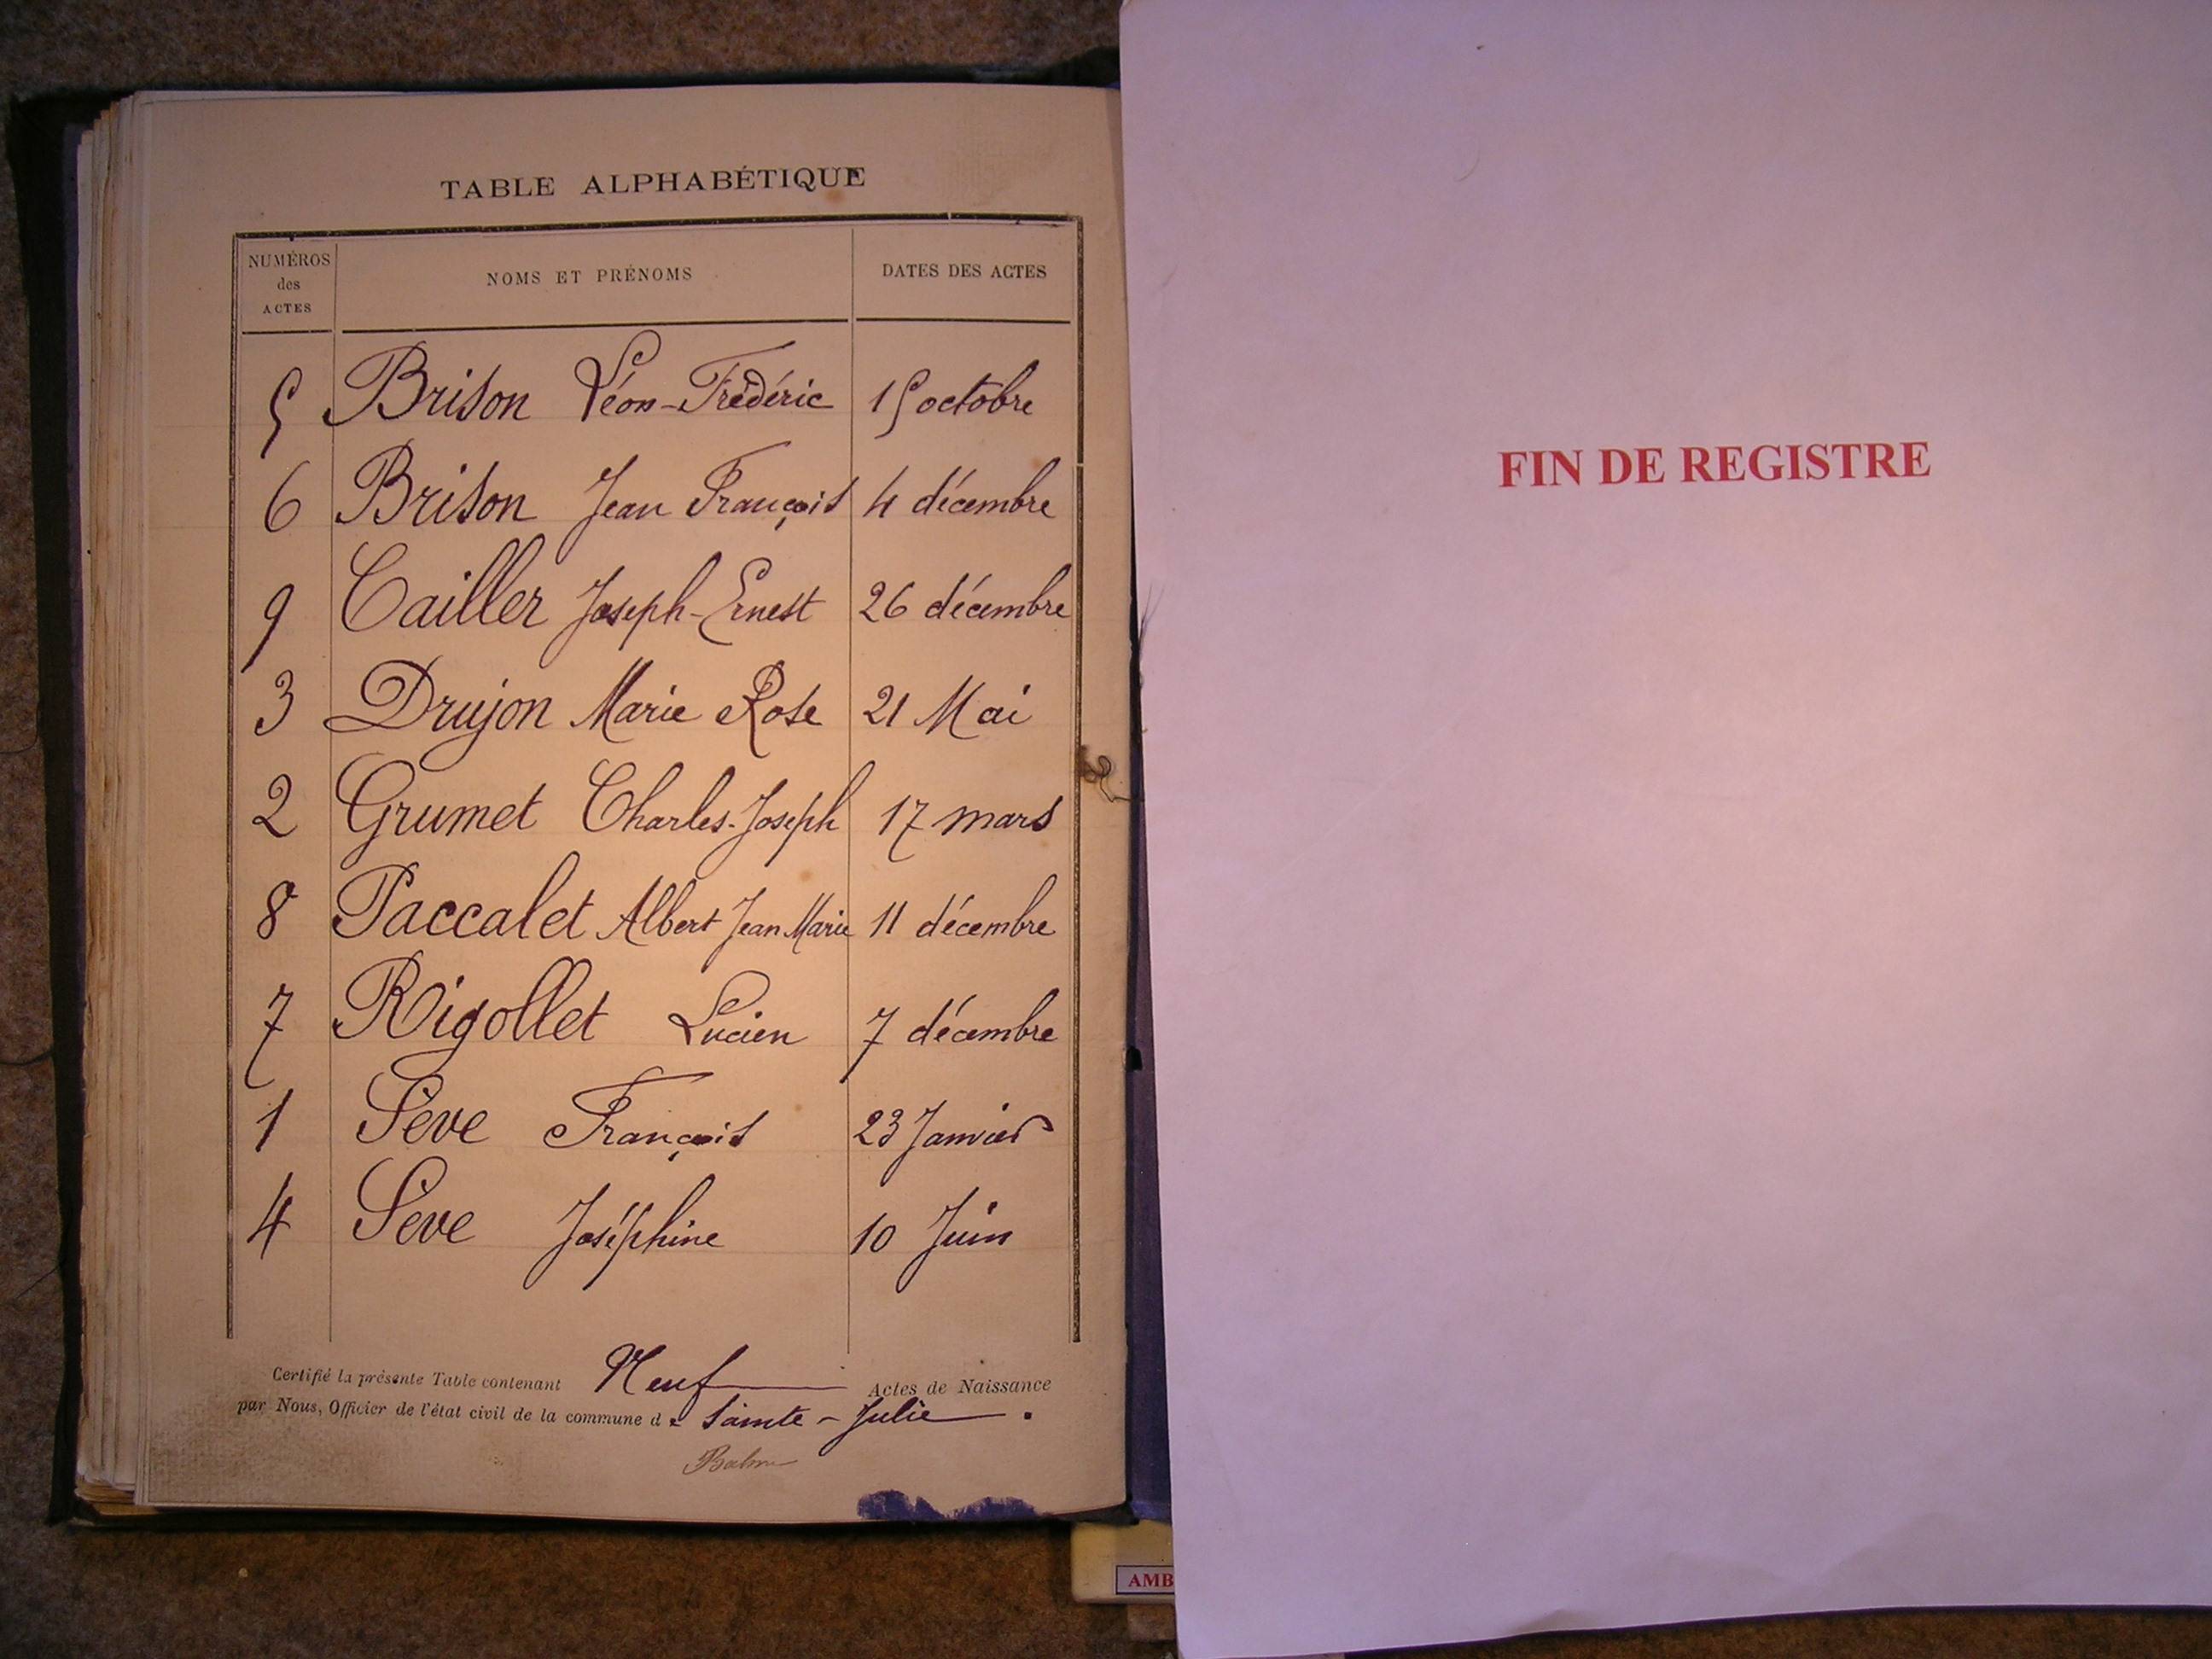 TABLE ALPHABÉTIQUE
NUMÉROS des ACTES NOMS ET PRÉNOMS DATES DES ACTES
5 Brison Léon-Frédéric 15 octobre
6 Brison Jean François 4 décembre
9 Cailler Joseph-Ernest 26 décembre
3 Drujon Marie Rose 21 Mai
2 Grumet Charles-Joseph 17 mars
8 Paccalet Albert Jean Marie 11 décembre
7 Rigollet Lucien 7 décembre
1 Sève François 23 Janvier
4 Sève Joséphine 10 Juin
Certifié la présente Table contenant Neuf Actes de Naissance
par Nous, Officier de l'état civil de la commune de Sainte-Julie.
FIN DE REGISTRE
AMB